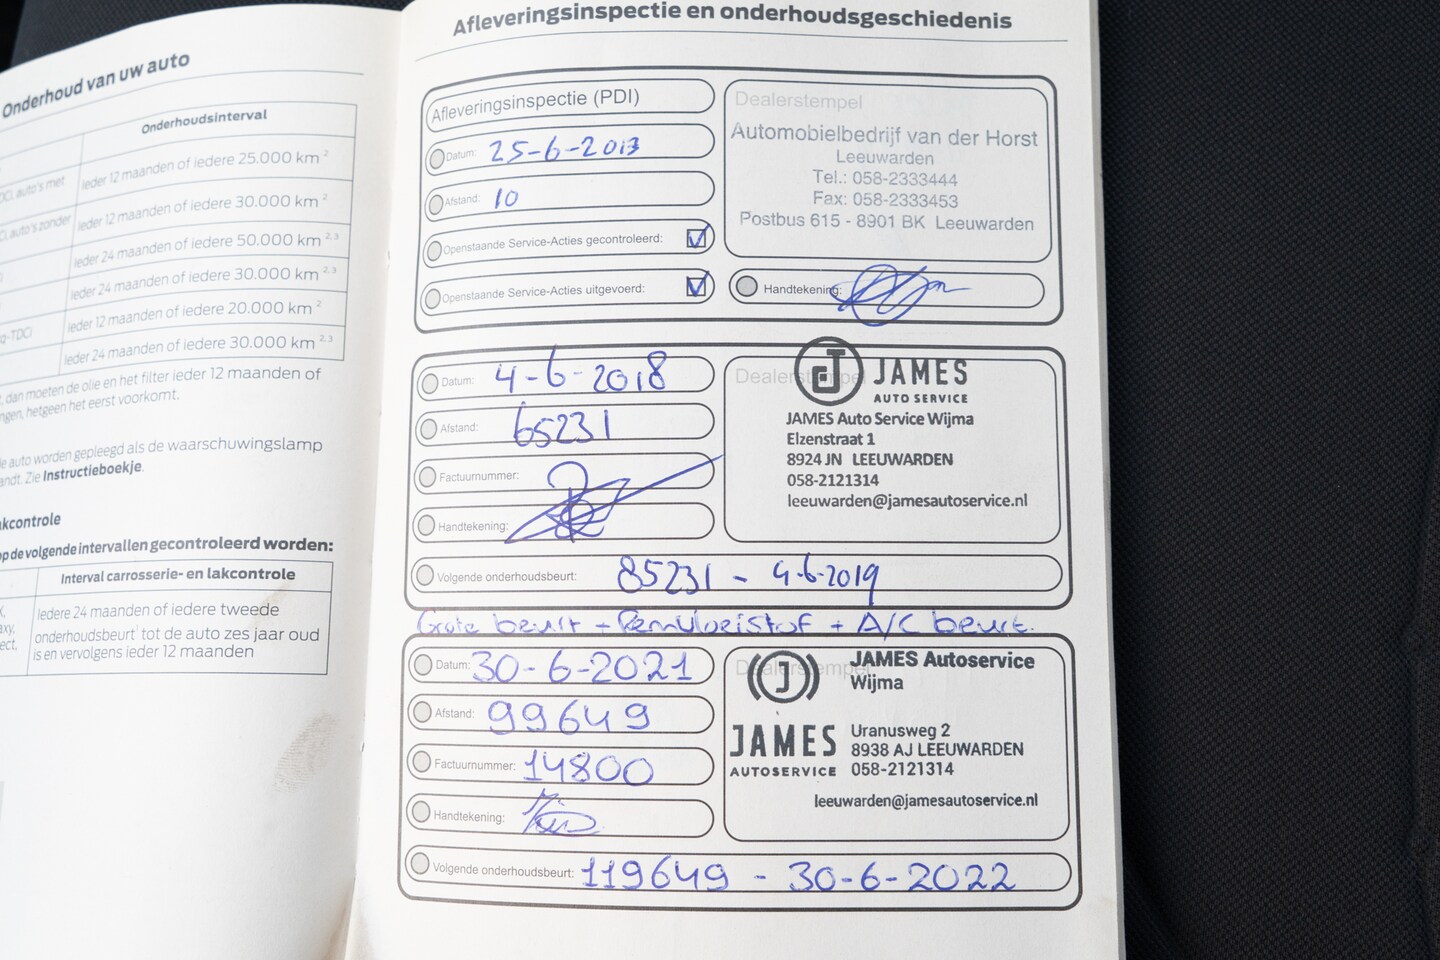 Onderhoud van uw auto
Onderhoudsinterval
Ieder 12 maanden of iedere 25.000 km 2
DCi, auto's met
Ieder 12 maanden of iedere 30.000 km 2
auto's zonder
Ieder 24 maanden of iedere 50.000 km 2, 3
Ieder 24 maanden of iedere 30.000 km 2, 3
Ieder 12 maanden of iedere 20.000 km 2
q-TDCi
Ieder 24 maanden of iedere 30.000 km 2, 3
, dan moeten de olie en het filter ieder 12 maanden of
ngen, hetgeen het eerst voorkomt.
de auto worden gepleegd als de waarschuwingslamp
andt. Zie Instructieboekje.
kcontrole
op de volgende intervallen gecontroleerd worden:
Interval carrosserie- en lakcontrole
Iedere 24 maanden of iedere tweede
onderhoudsbeurt1 tot de auto zes jaar oud
is en vervolgens ieder 12 maanden
Afleveringsinspectie en onderhoudsgeschiedenis
Afleveringsinspectie (PDI)
Datum: 25-6-2013
Afstand: 10
Openstaande Service-Acties gecontroleerd:
Openstaande Service-Acties uitgevoerd:
Dealerstempel
Automobielbedrijf van der Horst
Leeuwarden
Tel.: 058-2333444
Fax: 058-2333453
Postbus 615 - 8901 BK Leeuwarden
Handtekening:
Datum: 4-6-2018
Afstand: 65231
Factuurnummer:
Handtekening:
Dealerstempel
JAMES
AUTO SERVICE
JAMES Auto Service Wijma
Elzenstraat 1
8924 JN LEEUWARDEN
058-2121314
leeuwarden@jamesautoservice.nl
Volgende onderhoudsbeurt: 85231 - 4-6-2019
Grote beurt + Remvloeistof + A/C beurt.
Datum: 30-6-2021
Afstand: 99649
Factuurnummer: 14800
Handtekening:
Dealerstempel
JAMES Autoservice
Wijma
JAMES
AUTOSERVICE
Uranusweg 2
8938 AJ LEEUWARDEN
058-2121314
leeuwarden@jamesautoservice.nl
Volgende onderhoudsbeurt: 119649 - 30-6-2022